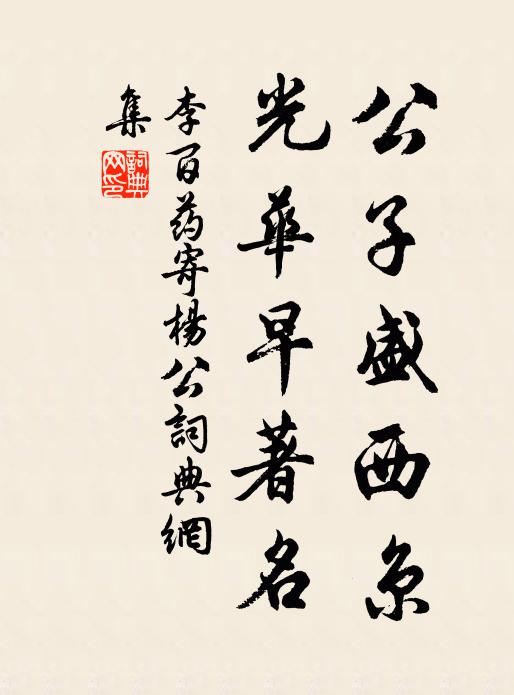 公子盛西京
光華早著名
李百药寄楊公詞典網
集
詞典
网印